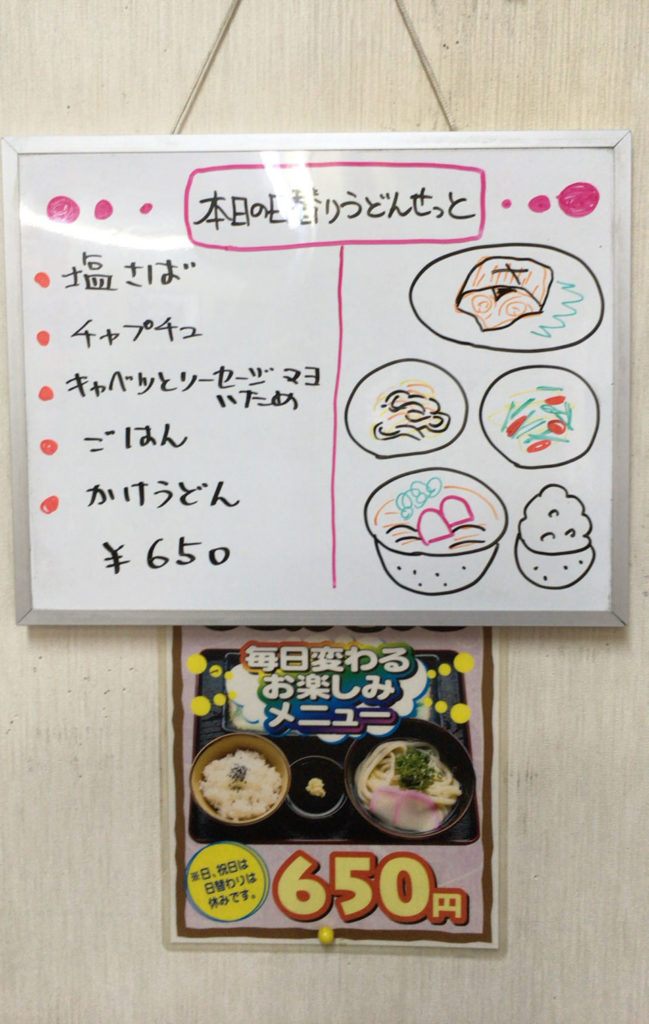 本日の日替りうどんせっと
塩さば
チャプチェ
キャベツとソーセージマヨ
いため
ごはん
かけうどん
¥650
毎日変わる
お楽しみ
メニュー
※日、祝日は
日替わりは
休みです。
650円